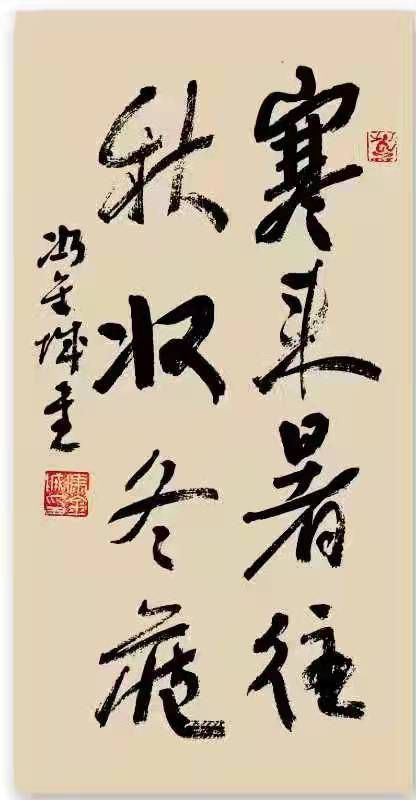 寒来暑往
秋收冬藏